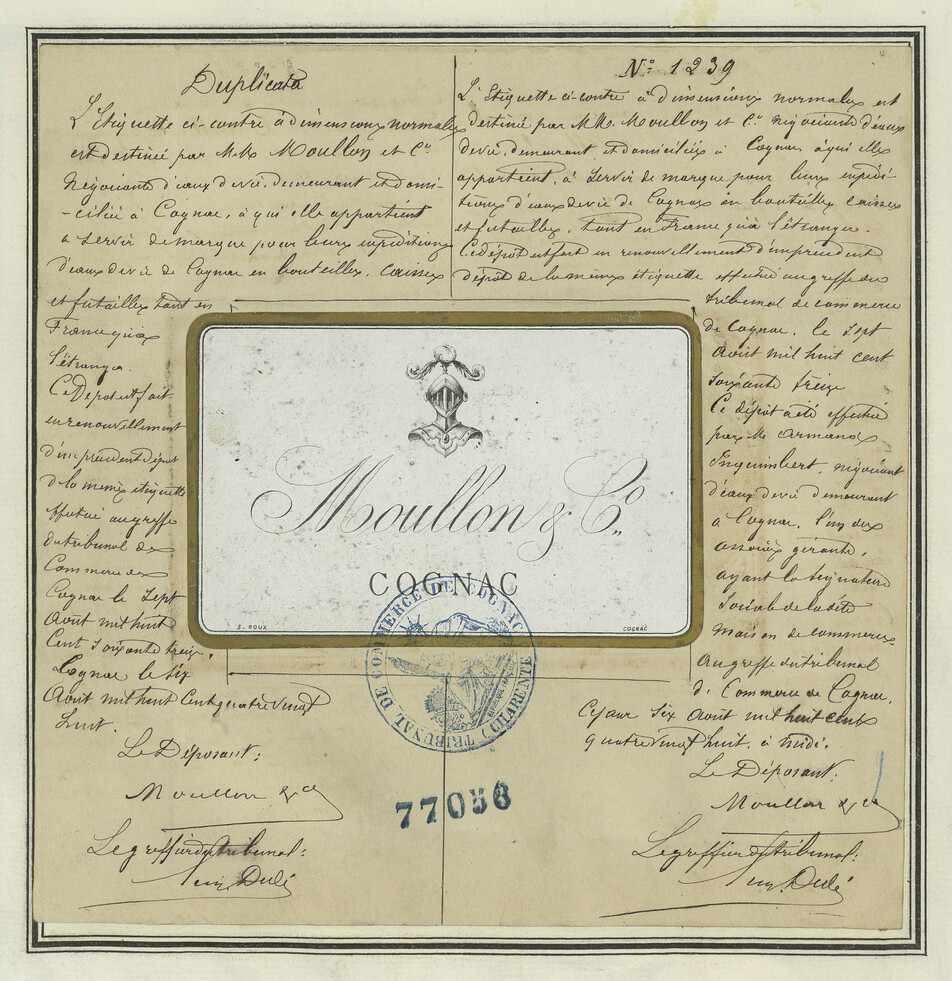 Duplicata
L'Etiquette ci-contre à dimensions normales
est destinée par M.Ms Moullon et Cie
Négociants d'eaux de vie, demeurant et domi-
-ciliés à Cognac, à qui elle appartient
à servir de marque pour leurs expéditions
d'eaux de vie de Cognac en bouteilles, caisses
et futailles tant en
France qu'à
l'étranger.
Ce Dépôt est fait
en renouvellement
d'un précédent dépôt
de la même étiquette
effectué au greffe
du tribunal de
Commerce de
Cognac le Sept
Août mil huit
Cent Soixante treize.
Cognac le Six
Août mil huit Cent quatre vingt
huit.
Le Déposant:
Moullon & Cie
Le greffier du tribunal:
Dulé
No 1239
L'Etiquette ci-contre à dimensions normales est
destinée par M.Ms. Moullon et Cie négociants d'eaux
de vie, demeurant et domiciliés à Cognac à qui elle
appartient, à servir de marque pour leurs expédi-
tions d'eaux de vie de Cognac en bouteilles caisses
et futailles, tant en France qu'à l'étranger.
Ce dépôt est fait en renouvellement d'un précédent
dépôt de la même étiquette effectué au greffe du
tribunal de commerce
de Cognac, le Sept
Août mil huit cent
soixante treize
Ce dépôt a été effectué
par M. Armand
Inquimbert, négociant
d'eaux de vie demeurant
à Cognac, l'un des
associés gérants,
ayant la signature
Sociale de la dite
maison de commerce
au greffe du tribunal
de Commerce de Cognac,
Ce jour Six Août mil huit cent
quatre vingt huit, à midi.
Le Déposant:
Moullon & Cie
Le greffier du tribunal:
Dulé
Moullon & Co.
COGNAC
S. ROUX
COGNAC
TRIBUNAL DE COMMERCE DE COGNAC (CHARENTE)
77056